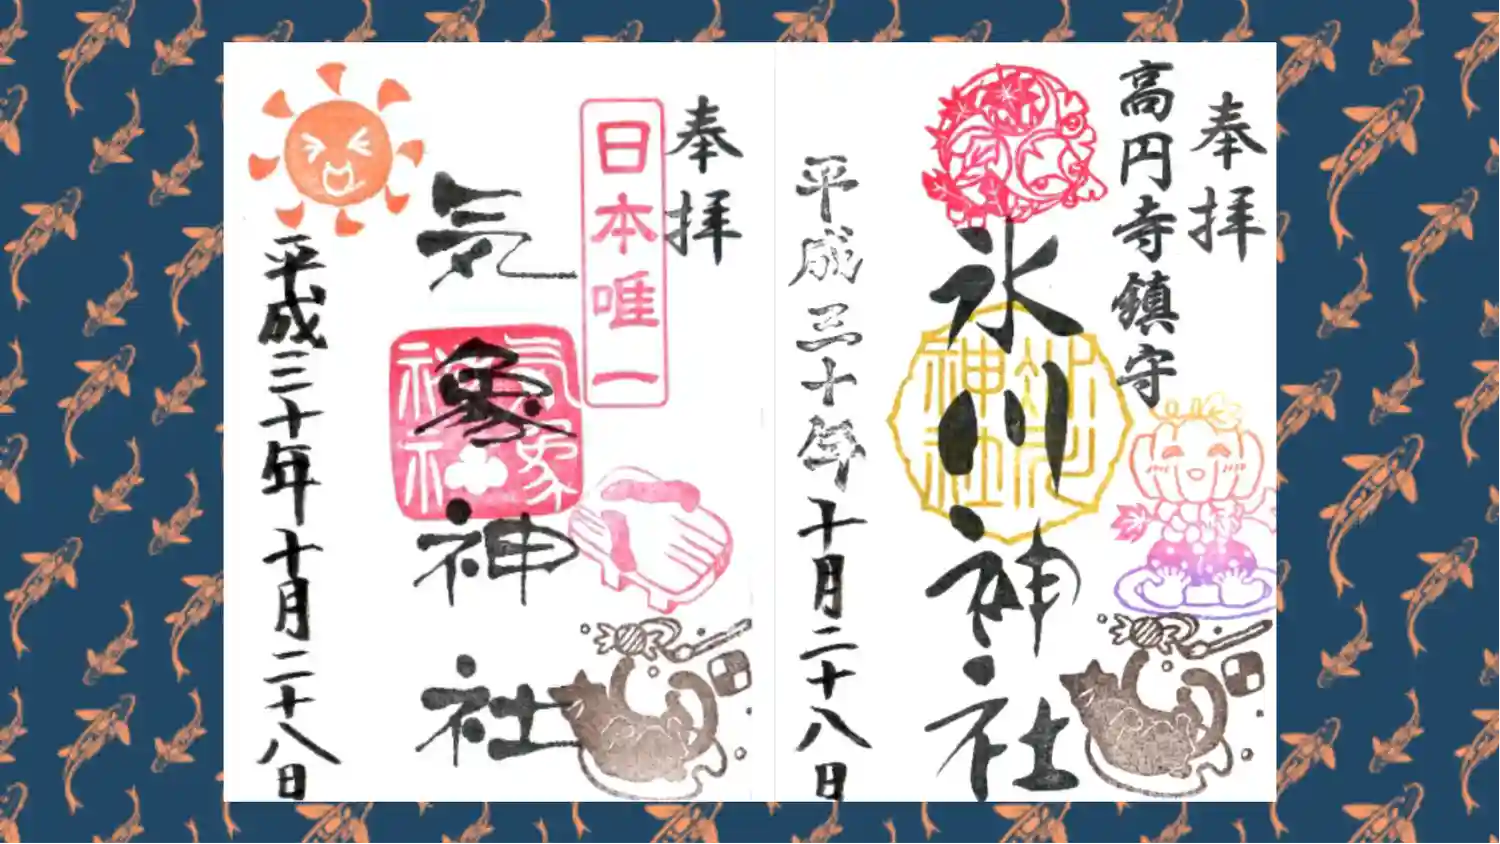 奉拝
高円寺鎮守
氷川神社
平成三十年十月二十八日
奉拝
日本唯一
気象神社
平成三十年十月二十八日